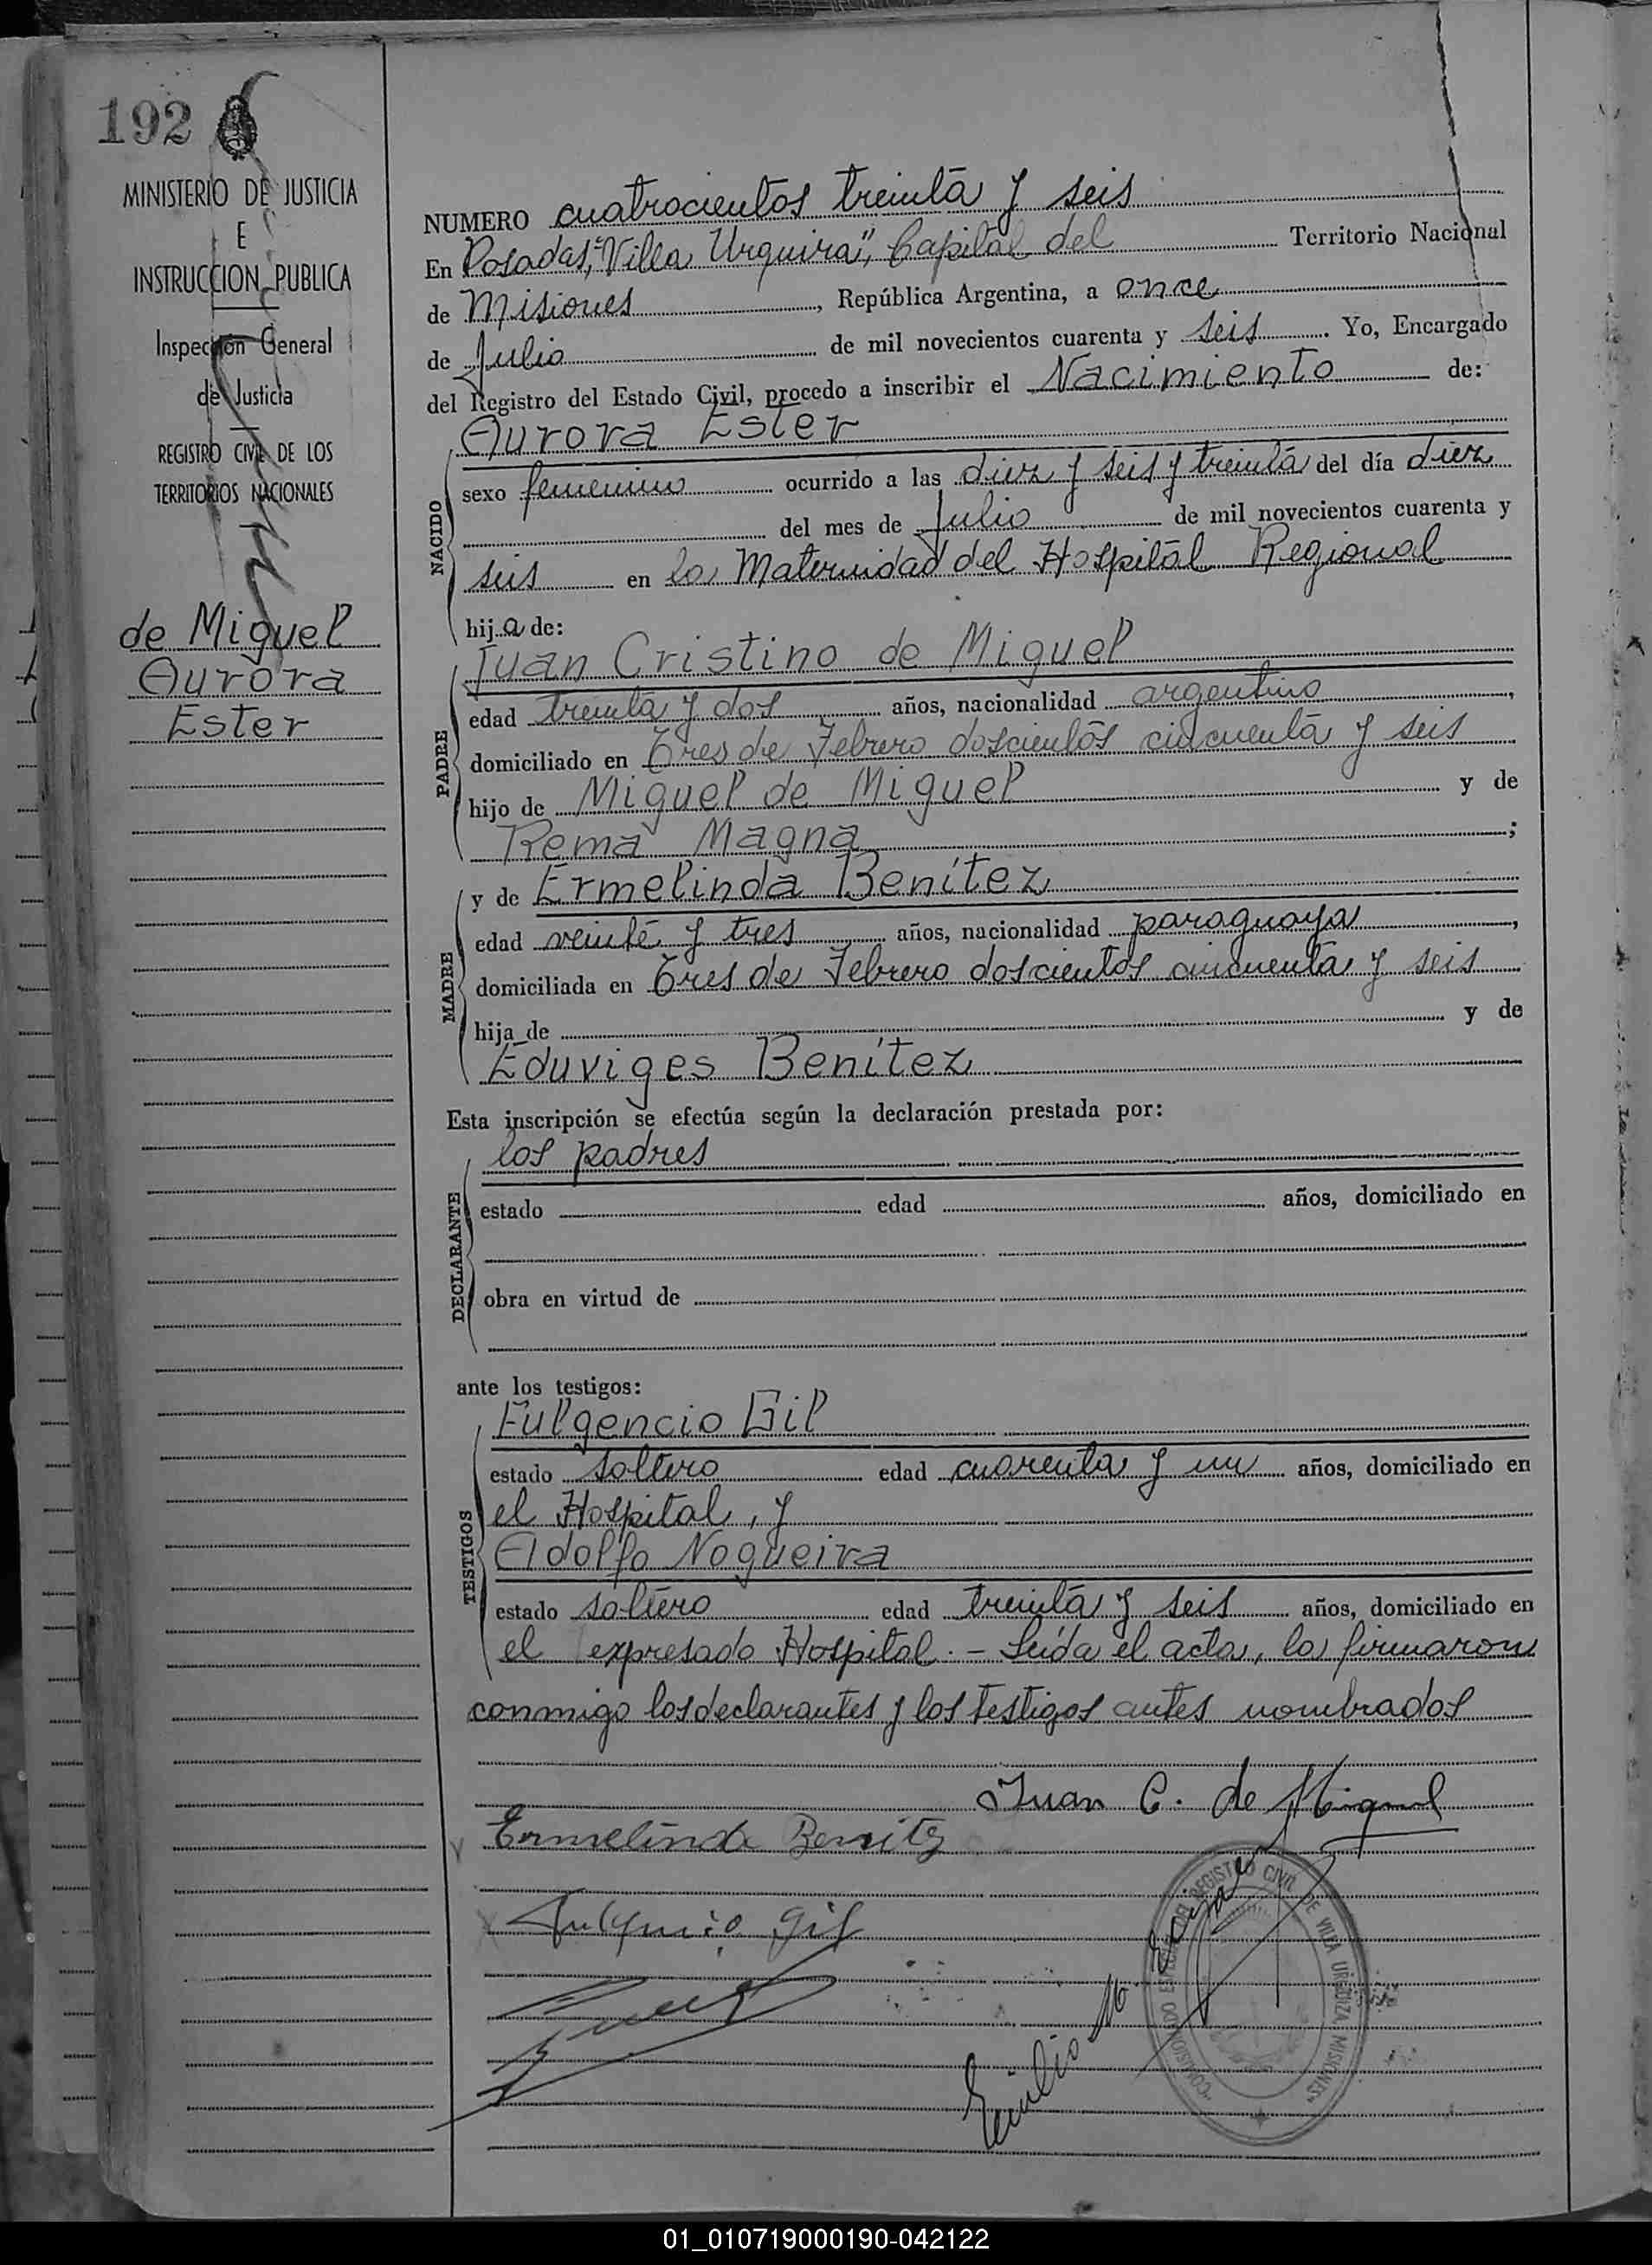 192
MINISTERIO DE JUSTICIA
E
INSTRUCCION PUBLICA
Inspección General
de Justicia
REGISTRO CIVIL DE LOS
TERRITORIOS NACIONALES
de Miguel
Aurora
Ester
NUMERO cuatrocientos treinta y seis
En Posadas, "Villa Urquiza", Capital del Territorio Nacional
de Misiones, República Argentina, a once
de Julio de mil novecientos cuarenta y seis. Yo, Encargado
del Registro del Estado Civil, procedo a inscribir el Nacimiento de:
Aurora Ester
NACIDO
sexo femenino ocurrido a las diez y seis y treinta del día diez
del mes de Julio de mil novecientos cuarenta y
seis en la Maternidad del Hospital Regional
hija de:
Juan Cristino de Miguel
PADRE
edad treinta y dos años, nacionalidad argentino,
domiciliado en Tres de Febrero doscientos cincuenta y seis
hijo de Miguel de Miguel y de
Rema Magna;
y de Ermelinda Benítez
MADRE
edad veinte y tres años, nacionalidad paraguaya,
domiciliada en Tres de Febrero doscientos cincuenta y seis
hija de y de
Eduviges Benítez
Esta inscripción se efectúa según la declaración prestada por:
los padres
DECLARANTE
estado edad años, domiciliado en
obra en virtud de
ante los testigos:
Fulgencio Gil
TESTIGOS
estado soltero edad cuarenta y un años, domiciliado en
el Hospital, y
Adolfo Nogueira
estado soltero edad treinta y seis años, domiciliado en
el expresado Hospital.- Leída el acta, la firmaron
conmigo los declarantes y los testigos antes nombrados
Juan C. de Miguel
Ermelinda Benítez
Fulgencio Gil
Emilio M.
REGISTRO CIVIL DE VILLA URQUIZA MISIONES
01_010719000190-042122